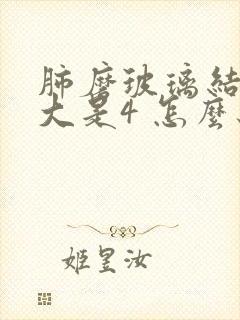 肺磨玻璃結
大是4怎麼
姬昱汝